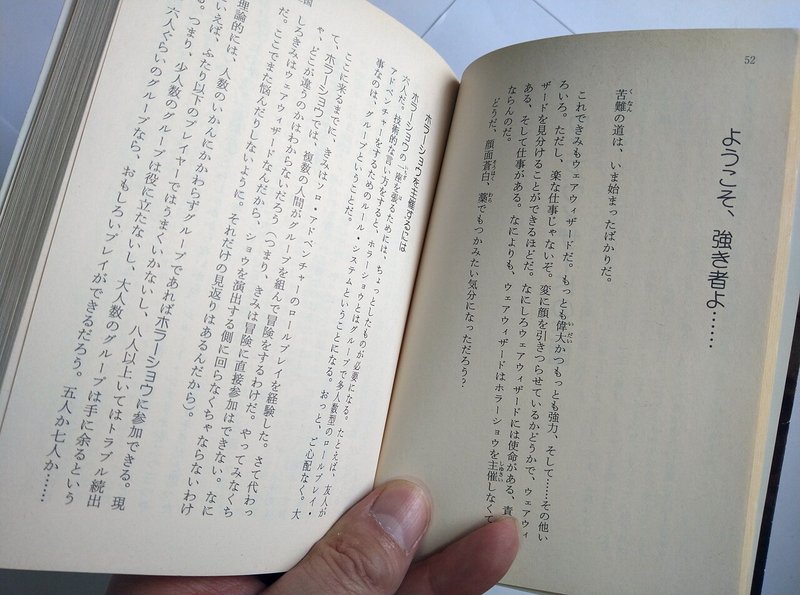 52
ようこそ、強き者よ……
苦難の道は、いま始まったばかりだ。
これできみもウェアウィザードだ。もっとも偉大かつもっとも強力、そして……その他い
ろいろ。ただし、楽な仕事じゃないぞ。変に顔を引きつらせているかどうかで、ウェアウィ
ザードを見分けることができるほどだ。なにしろウェアウィザードには使命がある、責
ある、そして仕事がある。なによりも、ウェアウィザードはホラーショウを主催しなくて
ならんのだ。
どうだ、顔面蒼白、藁でもつかみたい気分になっただろう?
ホラーショウを主催するには
ホラーショウの一座を張るためには、ちょっとしたものが必要になる。たとえば、友人が
六人だ。技術的な言い方をすると、ホラーショウとはグループで多人数型のロールプレイ・
アドベンチャーをするためのルール・システムということになる。おっと、ご心配なく。大
事なのは、グループということだ。
ここに来るまでに、きみはソロ・アドベンチャーのロールプレイを経験した。さて代わっ
て、ホラーショウでは、複数の人間がグループを組んで冒険をするわけだ。やってみなくち
ゃ、どこが違うのかはわからないだろう(つまり、きみは冒険に直接参加はできない。なに
しろきみはウェアウィザードなんだから、ショウを演出する側に回らなくちゃならないわけ
だ。ここでまた悩んだりしないように。それだけの見返りはあるんだから)。
理論的には、人数のいかんにかかわらずグループであればホラーショウに参加できる。現
といえば、ふたり以下のプレイヤーではうまくいかないし、八人以上いてはトラブル続出
る。つまり、少人数のグループは役に立たないし、大人数のグループは手に余るという
六人ぐらいのグループなら、おもしろいプレイができるだろう。五人か七人か……